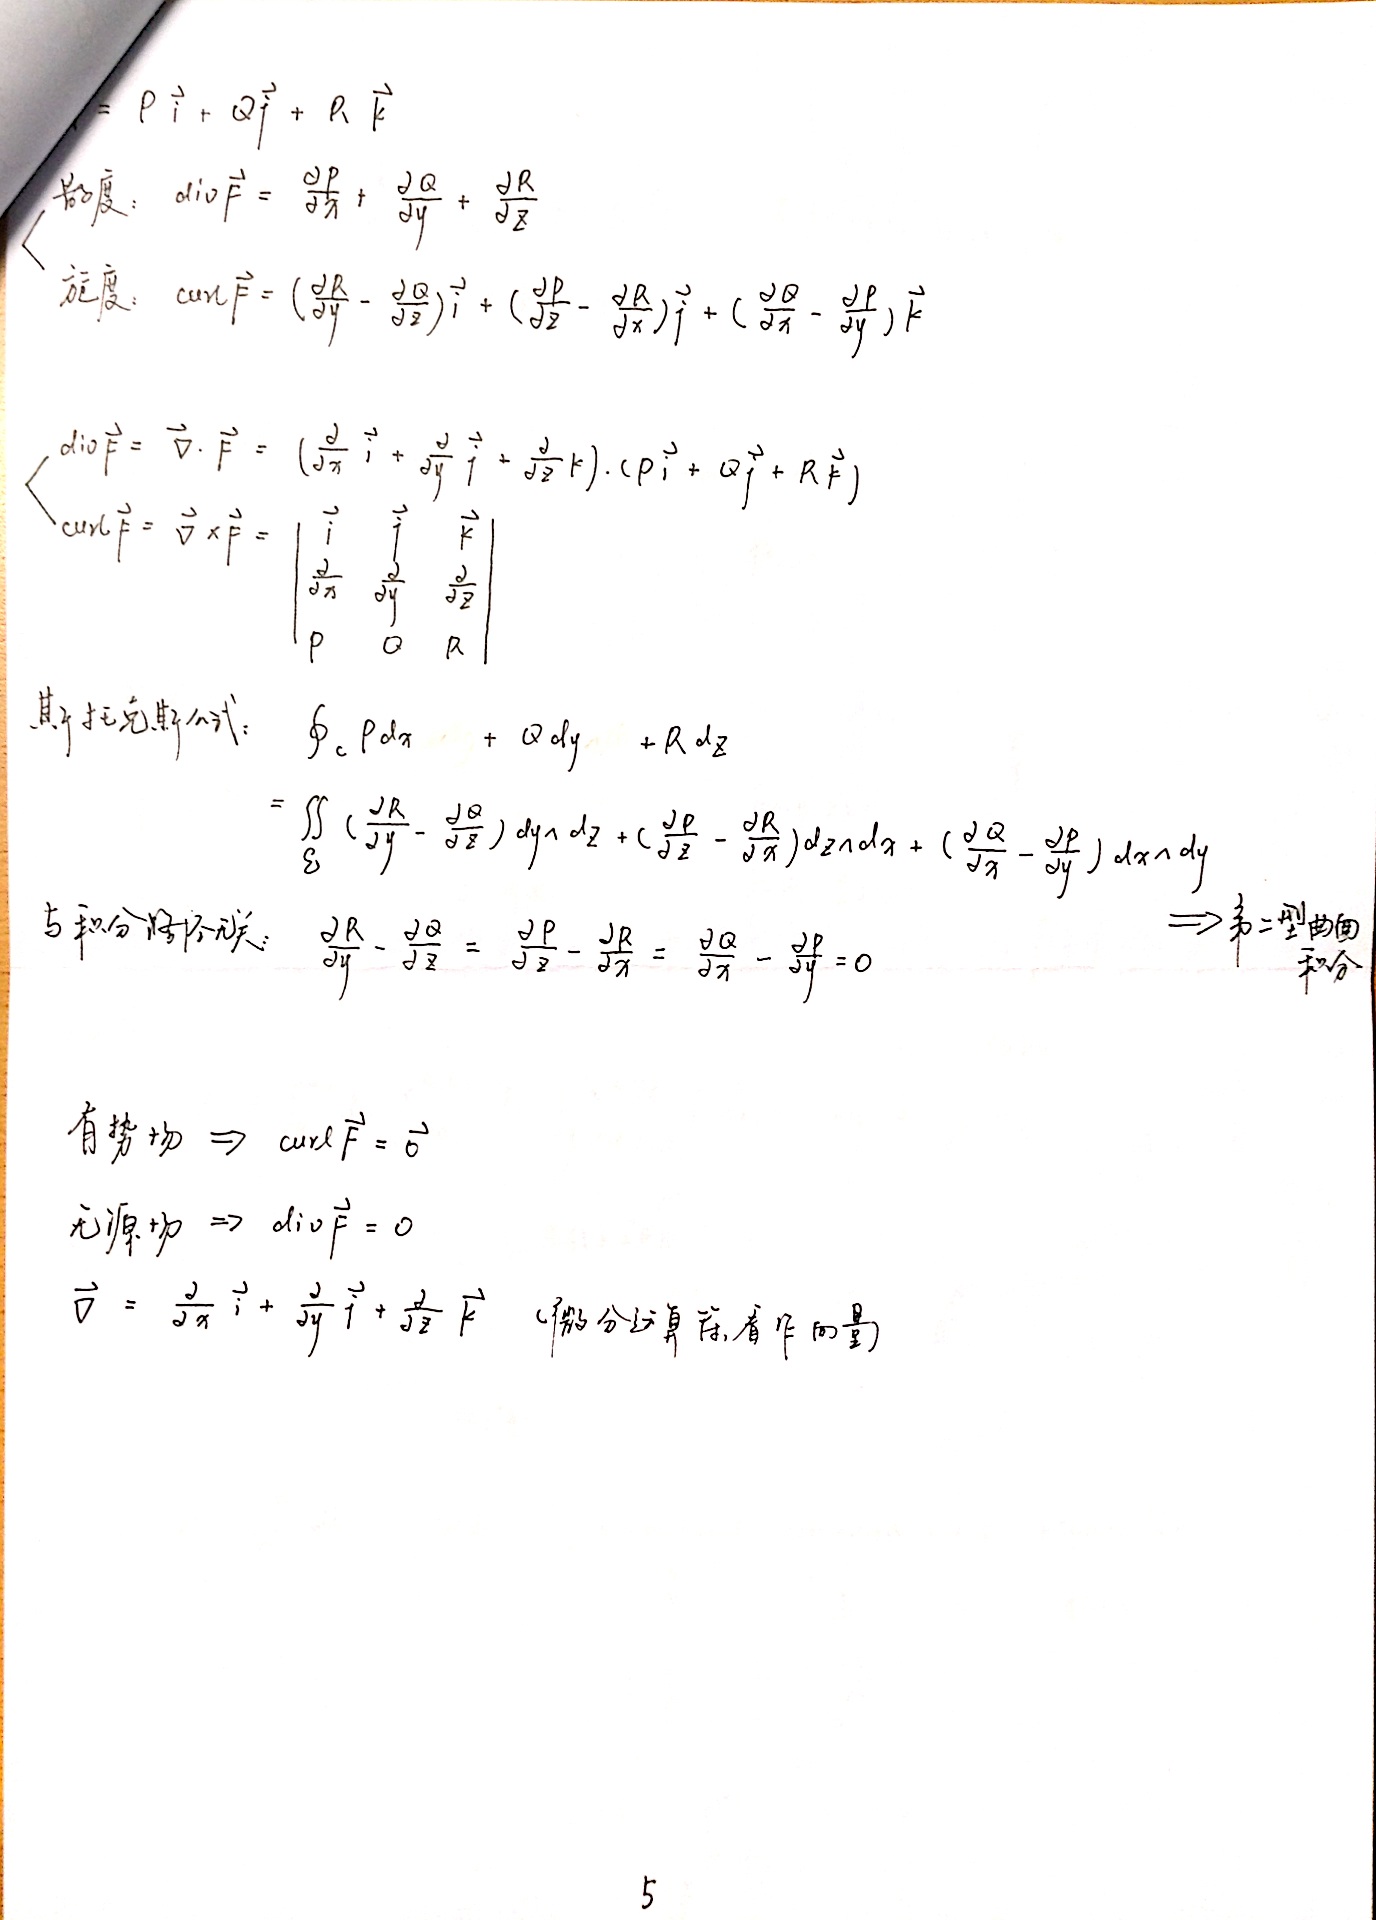 = P\vec{i} + Q\vec{j} + R\vec{k}
散度: div\vec{F} = \frac{∂P}{∂x} + \frac{∂Q}{∂y} + \frac{∂R}{∂z}
旋度: curl\vec{F} = (\frac{∂R}{∂y} - \frac{∂Q}{∂z})\vec{i} + (\frac{∂P}{∂z} - \frac{∂R}{∂x})\vec{j} + (\frac{∂Q}{∂x} - \frac{∂P}{∂y})\vec{k}
div\vec{F} = \vec{∇}·\vec{F} = (\frac{∂}{∂x}\vec{i} + \frac{∂}{∂y}\vec{j} + \frac{∂}{∂z}k)·(P\vec{i} + Q\vec{j} + R\vec{k})
curl\vec{F} = \vec{∇}×\vec{F} = | \vec{i} \vec{j} \vec{k}
\frac{∂}{∂x} \frac{∂}{∂y} \frac{∂}{∂z}
P Q R |
斯托克斯公式: ∮_c Pdx + Qdy + Rdz
= ∬_Σ (\frac{∂R}{∂y} - \frac{∂Q}{∂z}) dy∧dz + (\frac{∂P}{∂z} - \frac{∂R}{∂x}) dz∧dx + (\frac{∂Q}{∂x} - \frac{∂P}{∂y}) dx∧dy
⇒ 第二型曲面
积分
与积分路径无关: \frac{∂R}{∂y} - \frac{∂Q}{∂z} = \frac{∂P}{∂z} - \frac{∂R}{∂x} = \frac{∂Q}{∂x} - \frac{∂P}{∂y} = 0
有势场 ⇒ curl\vec{F} = \vec{0}
无源场 ⇒ div\vec{F} = 0
\vec{∇} = \frac{∂}{∂x}\vec{i} + \frac{∂}{∂y}\vec{j} + \frac{∂}{∂z}\vec{k} (微分运算符,看作向量)
5